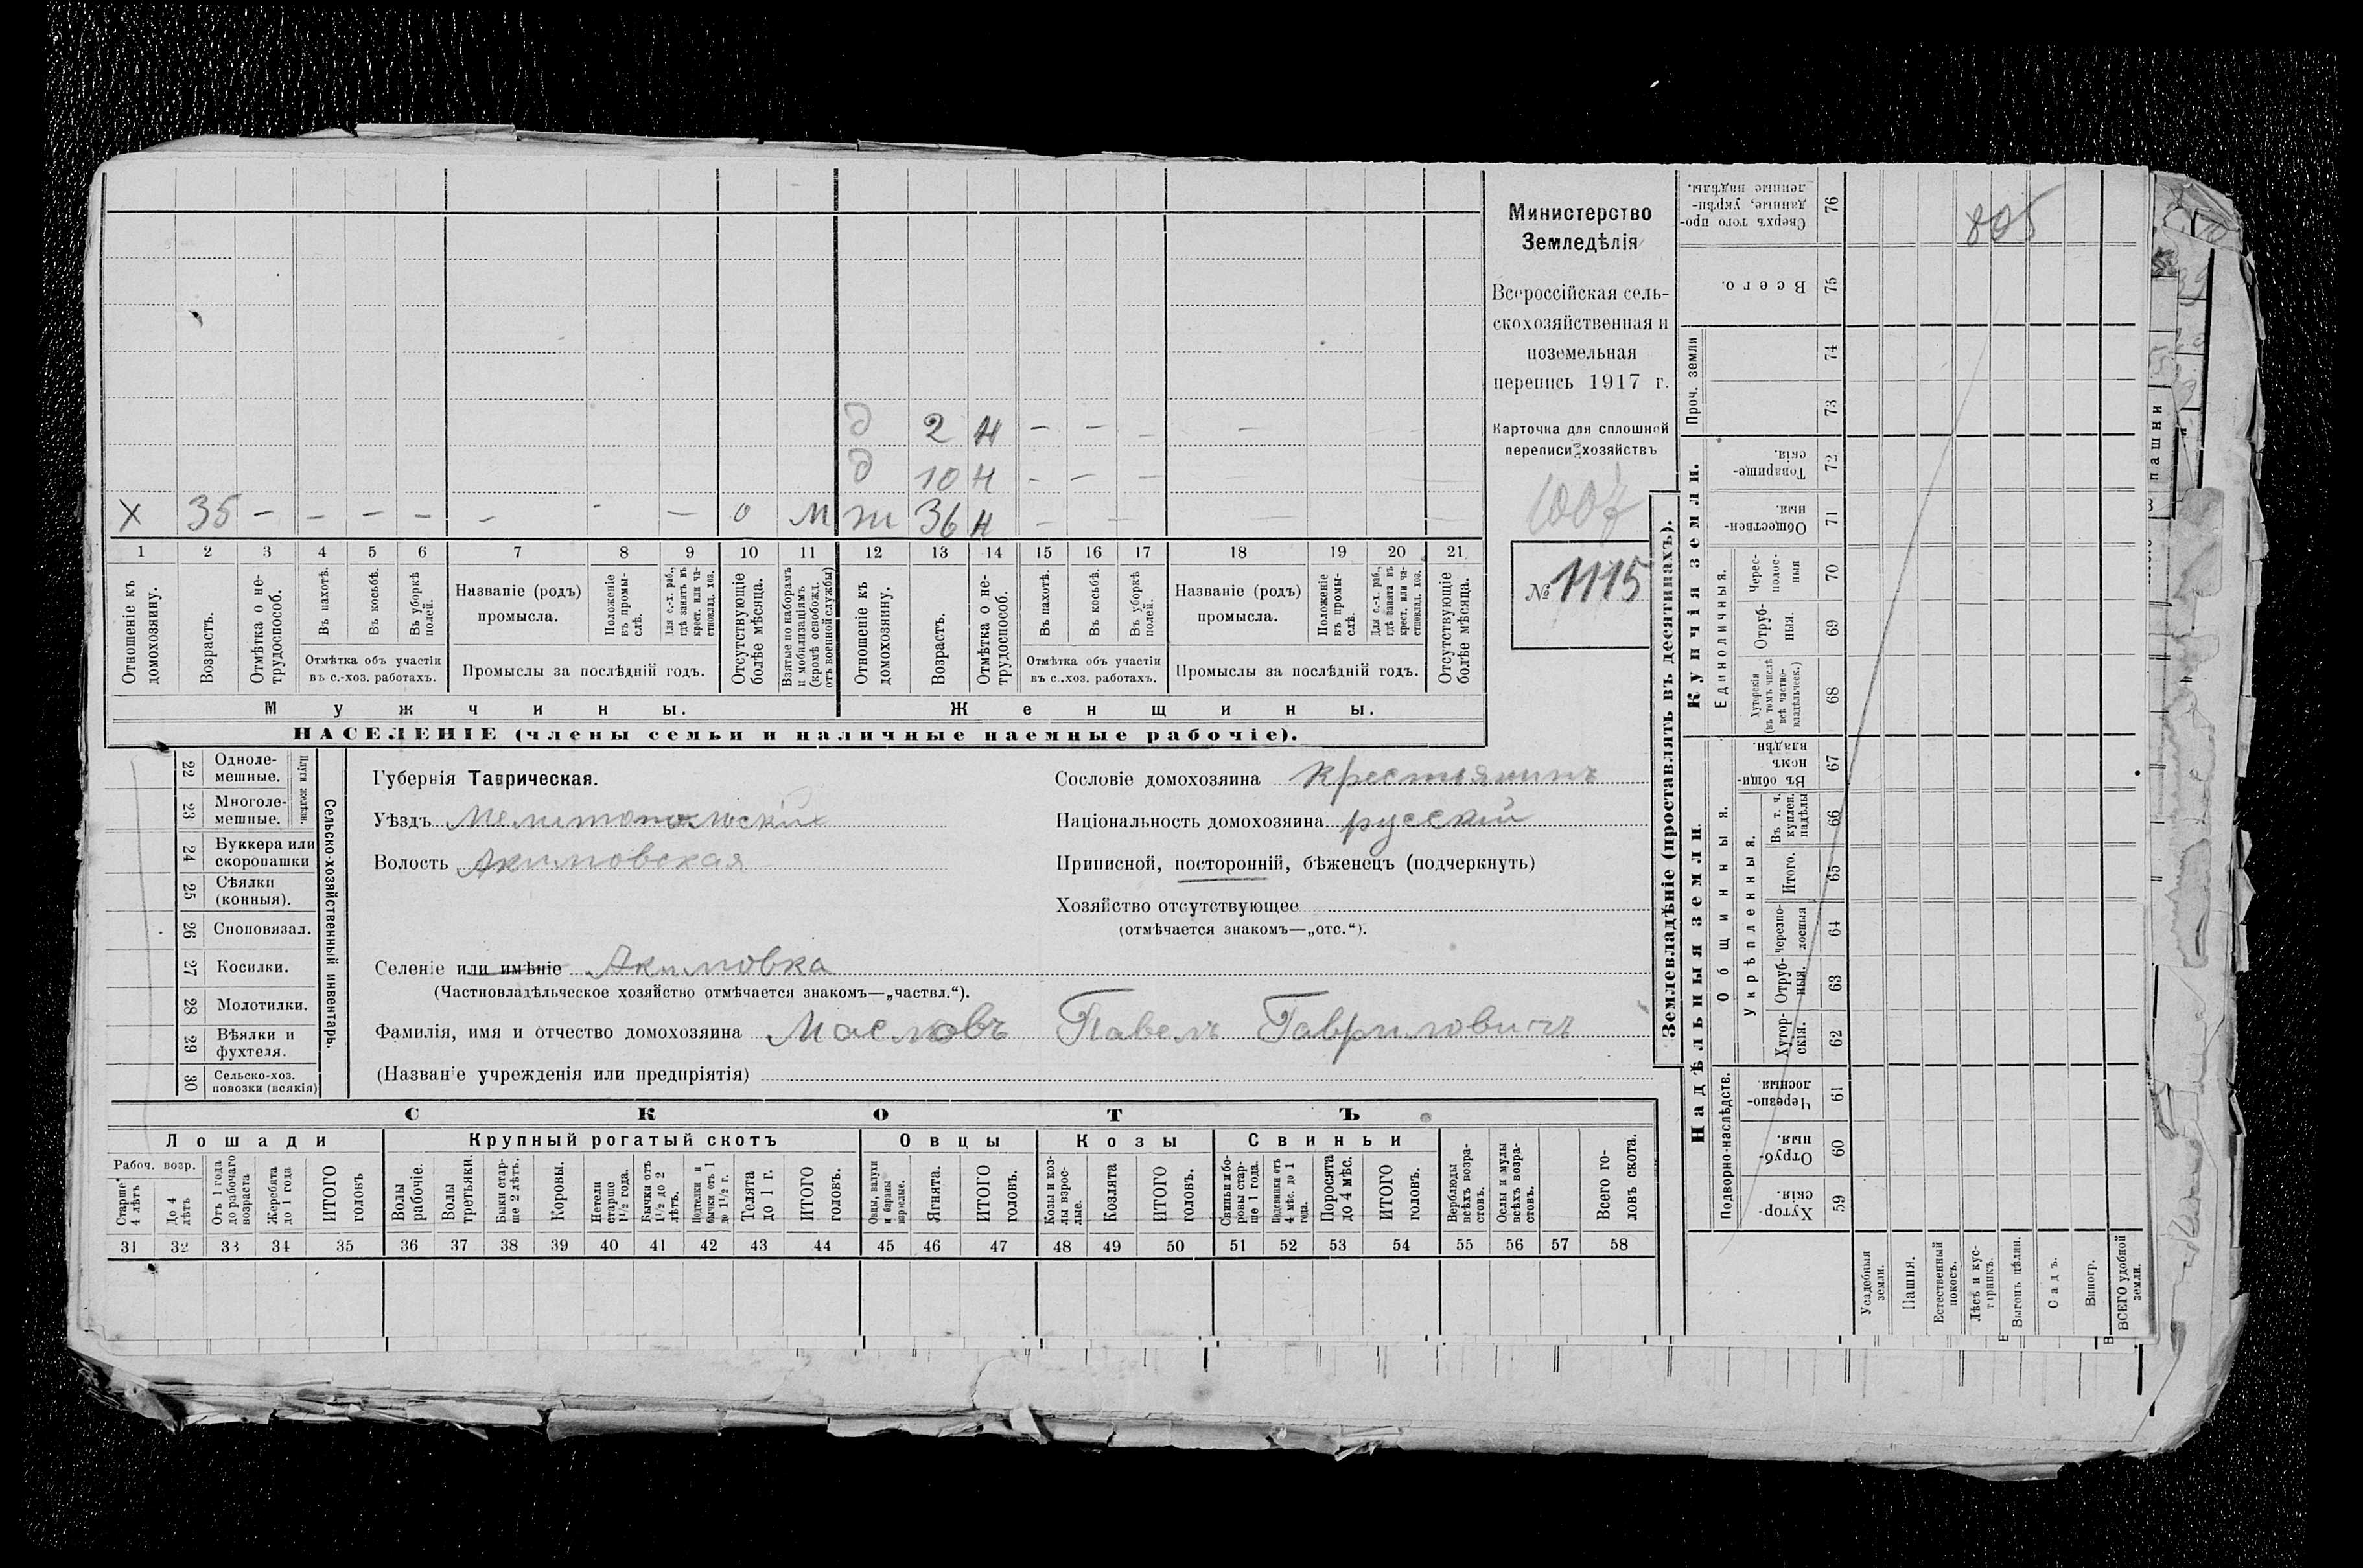 Министерство
Земледѣлія
Всероссійская сель-
скохозяйственная и
поземельная
перепись 1917 г.
Карточка для сплошной
переписи хозяйствъ
1007
№ 1115
805
д 2 н - - - -
д 10 н - - -
х 35 - - - - - - - о м ж 36 н - - - -
1 2 3 4 5 6 7 8 9 10 11 12 13 14 15 16 17 18 19 20 21
Отношеніе къ домохозяину.
Возрастъ.
Отмѣтка о не-трудоспособ.
Въ пахотѣ.
Въ косьбѣ.
Въ уборкѣ полей.
Отмѣтка объ участіи
въ с.-хоз. работахъ.
Названіе (родъ)
промысла.
Положеніе въ промы-слѣ.
Для с.-х. раб., гдѣ занятъ въ крест. или ча-стновлад. хоз.
Промыслы за послѣдній годъ.
Отсутствующіе болѣе мѣсяца.
Взятые по наборамъ и мобилизаціямъ (кромѣ освобожд. отъ военной службы)
Отношеніе къ домохозяину.
Возрастъ.
Отмѣтка о не-трудоспособ.
Въ пахотѣ.
Въ косьбѣ.
Въ уборкѣ полей.
Отмѣтка объ участіи
въ с.-хоз. работахъ.
Названіе (родъ)
промысла.
Положеніе въ промы-слѣ.
Для с.-х. раб., гдѣ занята въ крест. или ча-стновлад. хоз.
Промыслы за послѣдній годъ.
Отсутствующіе болѣе мѣсяца.
Мужчины. Женщины.
НАСЕЛЕНІЕ (члены семьи и наличные наемные рабочіе).
Сельско-хозяйственный инвентарь.
Плуги желѣзн.
22 Одноле-мешные.
23 Многоле-мешные.
24 Буккера или скоропашки
25 Сѣялки (конныя).
26 Сноповязал.
27 Косилки.
28 Молотилки.
29 Вѣялки и фухтеля.
30 Сельско-хоз. повозки (всякія)
Губернія Таврическая.
Уѣздъ Мелитопольскій
Волость Акимовская
Селеніе или имѣніе Акимовка
(Частновладѣльческое хозяйство отмѣчается знакомъ—„частвл.“).
Фамилія, имя и отчество домохозяина Масловъ Павелъ Гавриловичъ
(Названіе учрежденія или предпріятія)
Сословіе домохозяина Крестьянинъ
Національность домохозяина русскій
Приписной, посторонній, бѣженецъ (подчеркнуть)
Хозяйство отсутствующее
(отмѣчается знакомъ—„отс.“).
СКОТЪ
Лошади Крупный рогатый скотъ Овцы Козы Свиньи
Рабоч. возр.
Старше 4 лѣтъ
До 4 лѣтъ
Отъ 1 года до рабочаго возраста
Жеребята до 1 года
ИТОГО головъ
Волы рабочіе.
Волы третьяки.
Быки стар-ше 2 лѣтъ.
Коровы.
Нетели старше 1½ года.
Бычки отъ 1½ до 2 лѣтъ.
Подтелки и бычки отъ 1 до 1½ г.
Телята до 1 г.
ИТОГО головъ.
Овцы, валухи и бараны взрослые.
Ягнята.
ИТОГО головъ.
Козы и коз-лы взрос-лые.
Козлята
ИТОГО головъ.
Свиньи и бо-ровы стар-ше 1 года.
Подсвинки отъ 4 мѣс. до 1 года.
Поросята до 4 мѣс.
ИТОГО головъ.
Верблюды всѣхъ возра-стовъ.
Ослы и мулы всѣхъ возра-стовъ.
Всего го-ловъ скота.
31 32 33 34 35 36 37 38 39 40 41 42 43 44 45 46 47 48 49 50 51 52 53 54 55 56 57 58
Землевладѣніе (проставлять въ десятинахъ).
Надѣльныя земли. Купчія земли.
Подворно-наслѣдств.
Общинныя.
Укрѣпленныя.
Единоличныя.
Проч. земли
Хутор-скія. 59
Отруб-ныя. 60
Черезпо-лосныя. 61
Хутор-скія. 62
Отруб-ныя. 63
Черезпо-лосныя 64
Итого. 65
Въ т. ч. куплен. надѣлы 66
Въ общи-номъ владѣн. 67
Хуторскія (въ томъ числѣ всѣ частно-владѣльческ.) 68
Отруб-ныя. 69
Черес-полос-ныя 70
Обществен-ныя. 71
Товарище-скія. 72
73
74
Всего. 75
Сверхъ того про-данные, укрѣп-ленные надѣлы. 76
Усадебныя земли.
Пашня.
Естественный покосъ.
Лѣсъ и кус-тарникъ.
Выгонъ цѣлин.
Садъ.
Виногр.
ВСЕГО удобной земли.
пашни